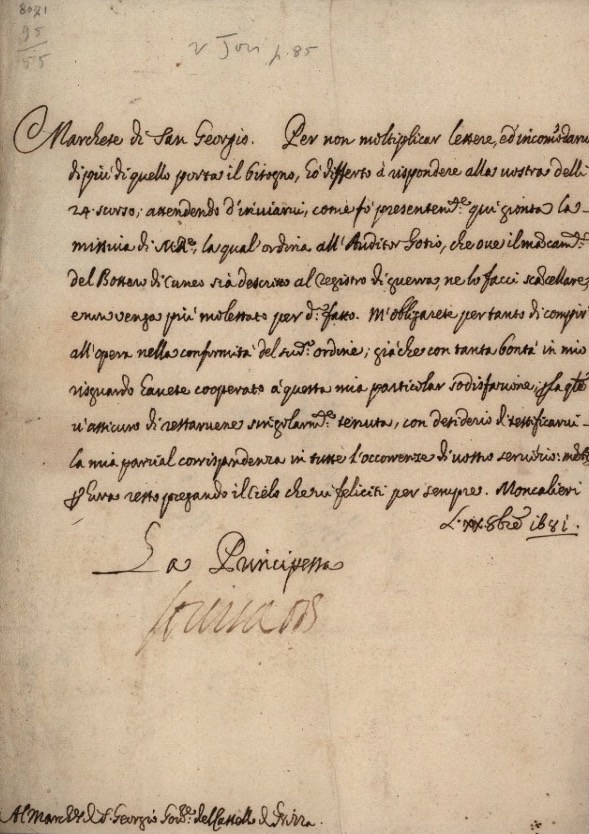 8021
95
55
v Jori p. 85
Marchese di San Georgio. Per non moltiplicar lettere, ed incomodarui
di più di quello porta il bisogno, hò differto à rispondere alla vostra delli
24. scorso, attendendo d'inuiarui, come fò presentem.te qui gionta la
missiua di M.R., la qual ordina all'Auditor Gotio, che oue il
del Bottero di Cuneo sia descritto al registro di guerra, ne lo facci scãcellare,
e non venga più molestato per d.o fatto. M'obligarete per tanto di compir
all'opera nella conformità del sud.o ordine; già che con tanta bontà in mio
risguardo hauete cooperato à questa mia particolar sodisfatione;
v'assicuro di restaruene singolarm.te tenuta, con desiderio di testificarui
la mia parzial corrispondenza in tutte l'occorrenze di vostro seruitio:
resto pregando il Cielo che vi feliciti per sempre. Moncalieri
xx 8bre 1681.
La Principessa
Al March.e di S. Georgio Gou.re del Castello di